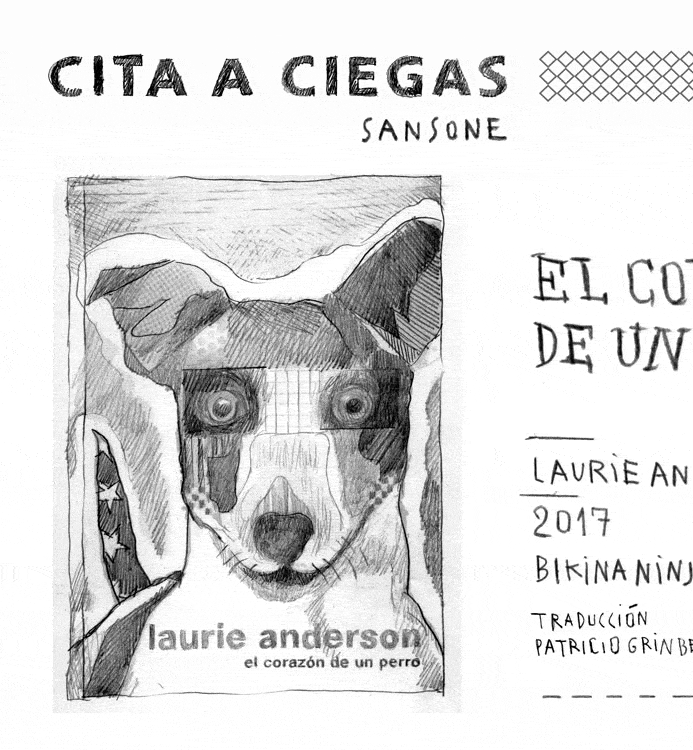 CITA A CIEGAS
SANSONE
laurie anderson
el corazón de un perro
EL CO
DE UN
LAURIE AN
2017
BIKINA NINJ
TRADUCCIÓN
PATRICIO GRINBE